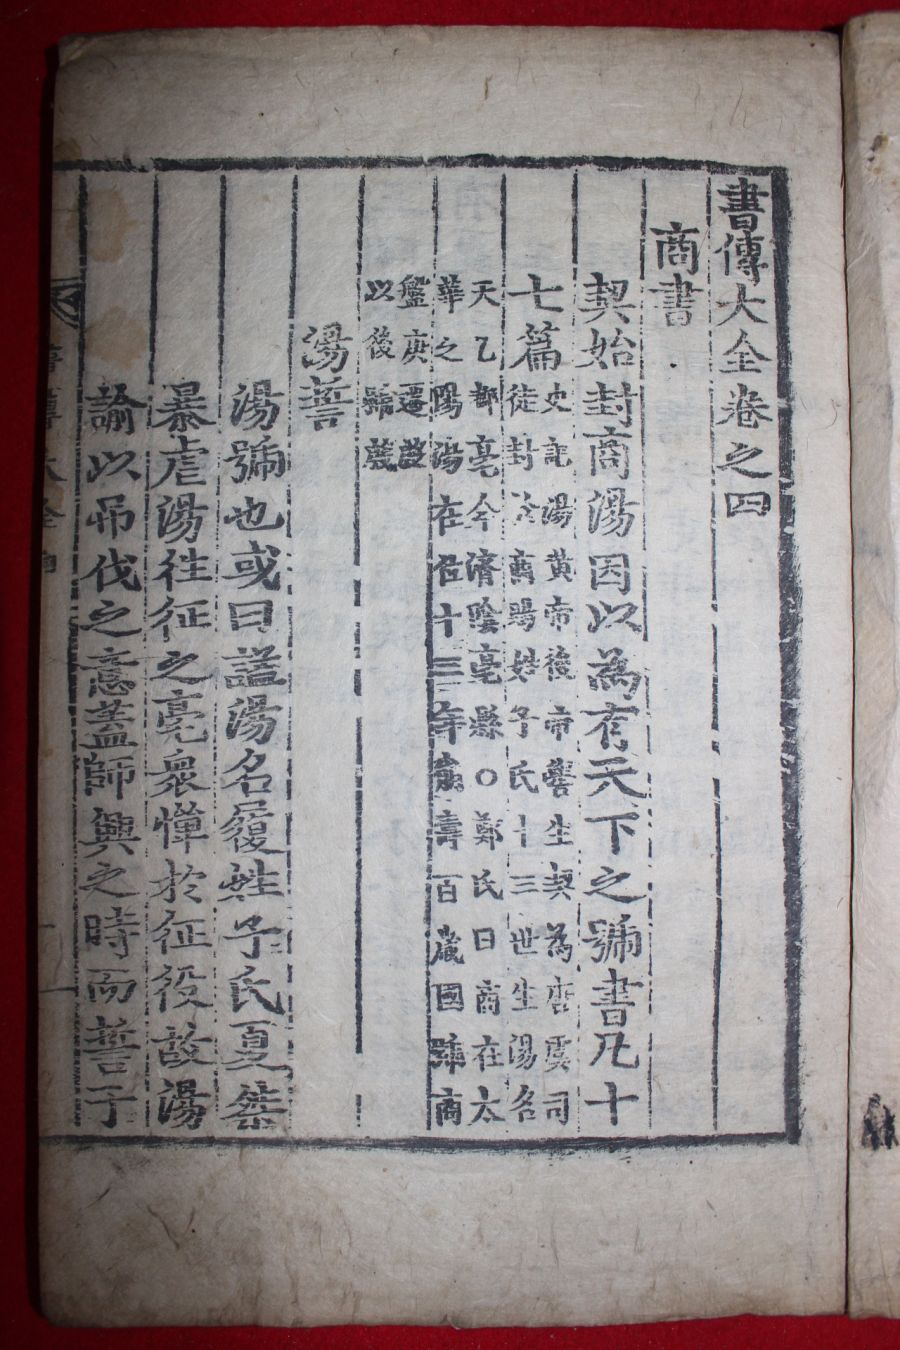 書傳大全卷之四
商書
契始封商湯因以為有天下之號書凡十
七篇
史記湯黃帝後帝嚳生契為唐虞司
徒封於商賜姓子氏十三世生湯名
天乙都亳今濟陰亳縣○鄭氏曰商在太
華之陽湯在位十三年壽百歲國號商
盤庚遷殷
以後號殷
湯誓
湯號也或曰諡湯名履姓子氏夏桀
暴虐湯往征之亳衆憚於征役故湯
諭以吊伐之意蓋師興之時而誓于
書傳大全